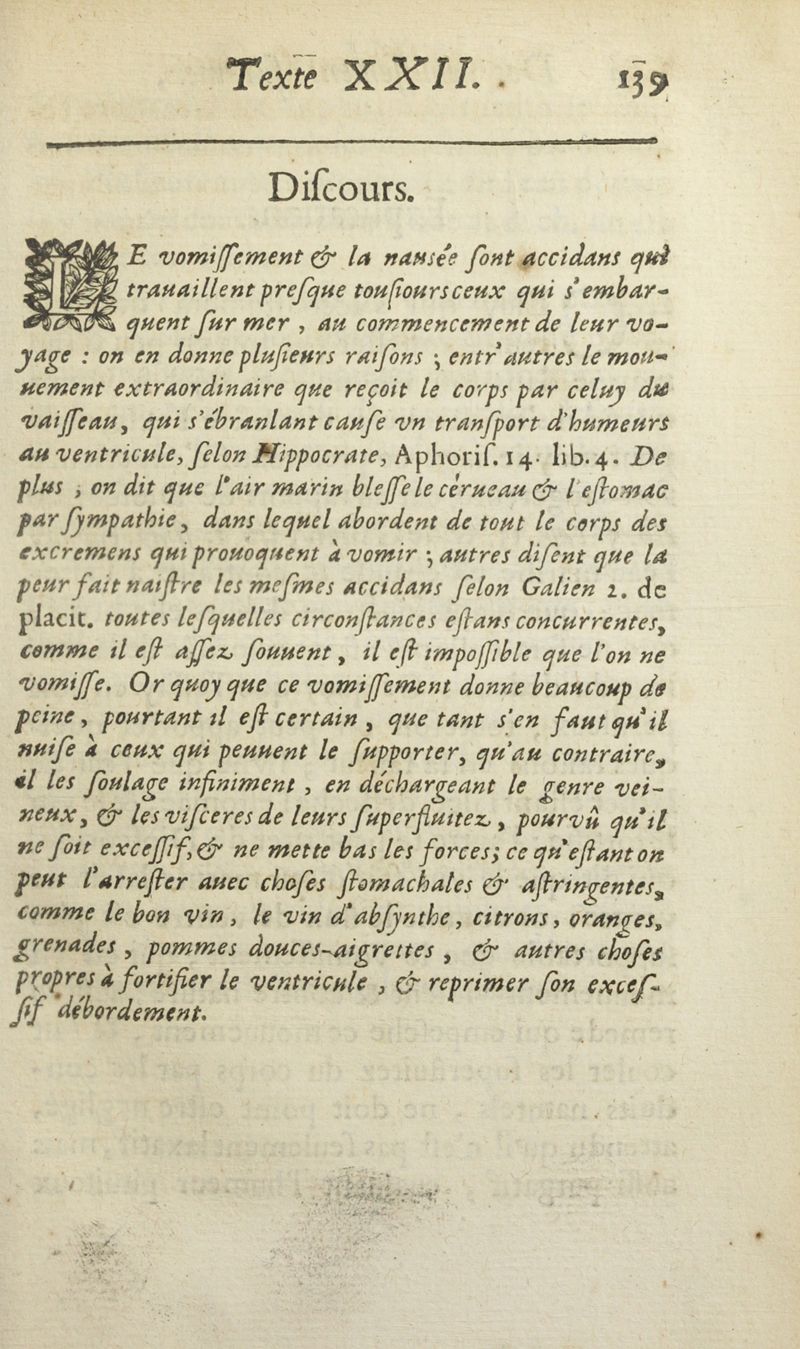 Texte XXII. . 139
Diſcours.
LE vomiſſement & la nausée ſont accidans qui
trauaillent preſque touſiours ceux qui s'embar-
quent ſur mer , au commencement de leur vo-
yage : on en donne pluſieurs raiſons ; entr'autres le mou-
uement extraordinaire que reçoit le corps par celuy du
vaiſſeau, qui s'ébranlant cauſe vn tranſport d'humeurs
au ventricule, ſelon Hippocrate, Aphoriſ. 14. lib. 4. De
plus , on dit que l'air marin bleſſe le cerueau & l'eſtomac
par ſympathie, dans lequel abordent de tout le corps des
excremens qui prouoquent à vomir ; autres diſent que la
peur fait naiſtre les meſmes accidans ſelon Galien 2. de
placit. toutes leſquelles circonſtances eſtans concurrentes,
comme il eſt aſſez ſouuent , il eſt impoſſible que l'on ne
vomiſſe. Or quoy que ce vomiſſement donne beaucoup de
peine , pourtant il eſt certain , que tant s'en faut qu'il
nuiſe à ceux qui peuuent le ſupporter, qu'au contraire,
il les ſoulage infiniment , en déchargeant le genre vei-
neux, & les viſceres de leurs ſuperfluitez , pourvû qu'il
ne ſoit exceſſif, & ne mette bas les forces; ce qu'eſtant on
peut l'arreſter auec choſes ſtomachales & aſtringentes,
comme le bon vin, le vin d'abſynthe, citrons, oranges,
grenades , pommes douces-aigrettes , & autres choſes
propres à fortifier le ventricule , & reprimer ſon exceſ-
ſif débordement.